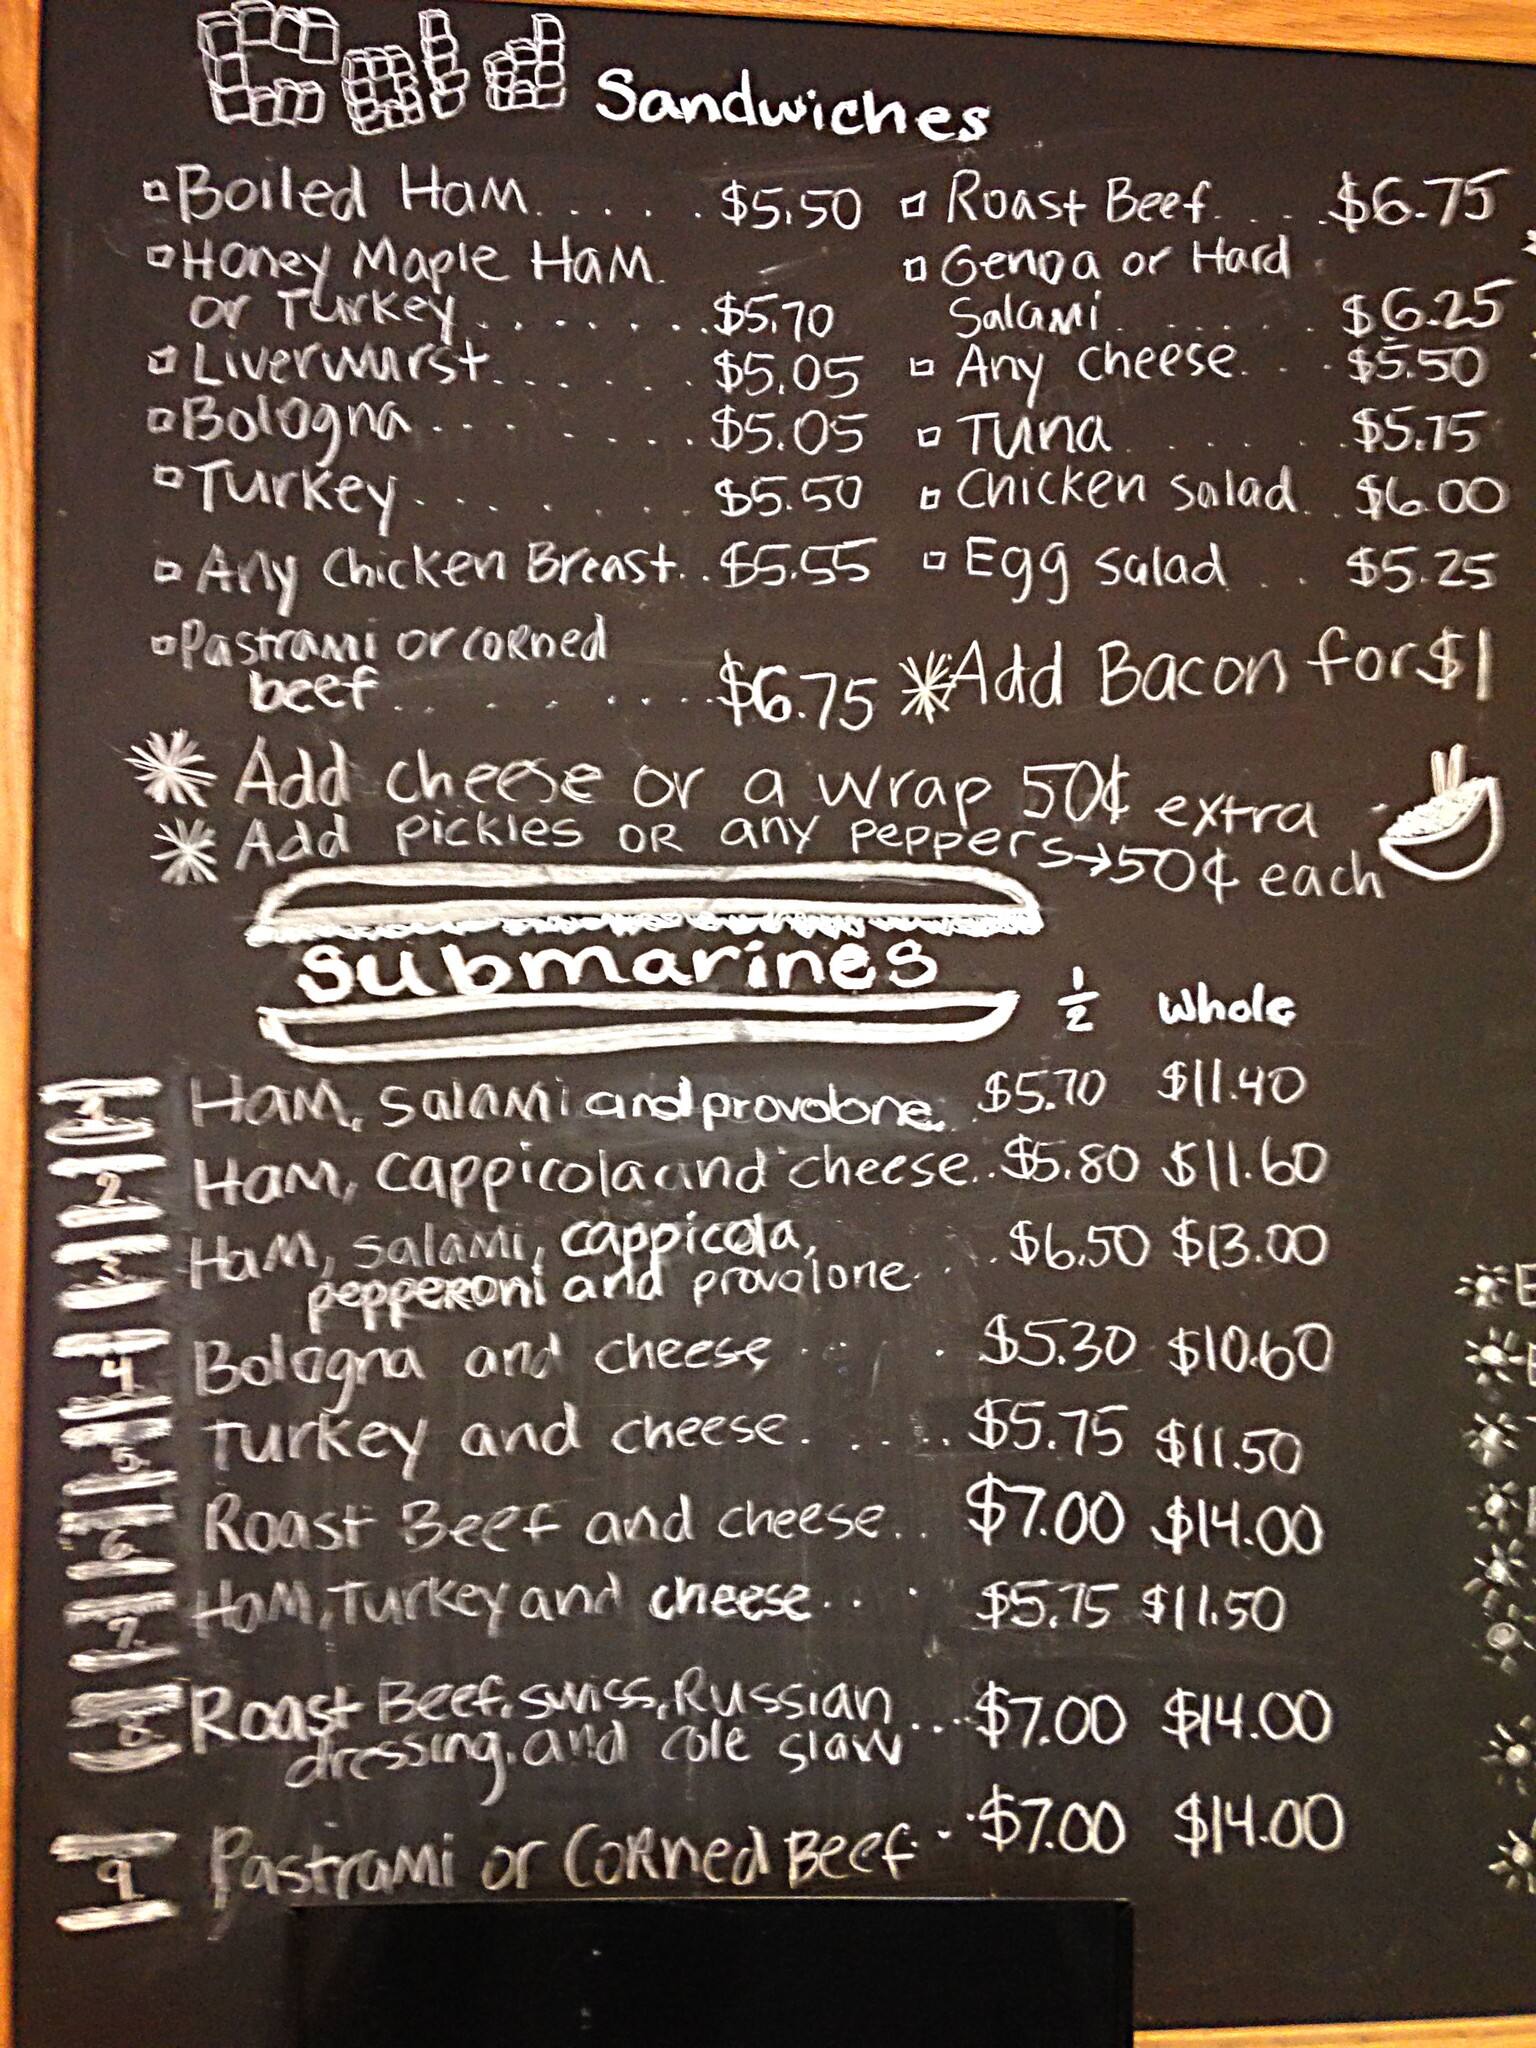 Cold Sandwiches
Boiled Ham..... $5.50
Honey Maple Ham
or Turkey....... $5.70
Liverwurst....... $5.05
Bologna........ $5.05
Turkey....... $5.50
Any Chicken Breast.. $5.55
Pastrami or corned
beef........ $6.75
Roast Beef.... $6.75
Genoa or Hard
Salami...... $6.25
Any cheese... $5.50
Tuna..... $5.75
Chicken salad.. $6.00
Egg salad .. $5.25
*Add Bacon for $1
* Add cheese or a wrap 50¢ extra
* Add pickles OR any peppers→50¢ each
submarines
1/2 whole
1. Ham, salami and provolone. $5.70 $11.40
2. Ham, cappicola and cheese.. $5.80 $11.60
3. Ham, salami, cappicola,
pepperoni and provolone... $6.50 $13.00
4. Bologna and cheese ... $5.30 $10.60
5. Turkey and cheese..... $5.75 $11.50
6. Roast Beef and cheese.. $7.00 $14.00
7. Ham, Turkey and cheese... $5.75 $11.50
8. Roast Beef, swiss, Russian
dressing, and cole slaw ... $7.00 $14.00
9. Pastrami or Corned Beef... $7.00 $14.00